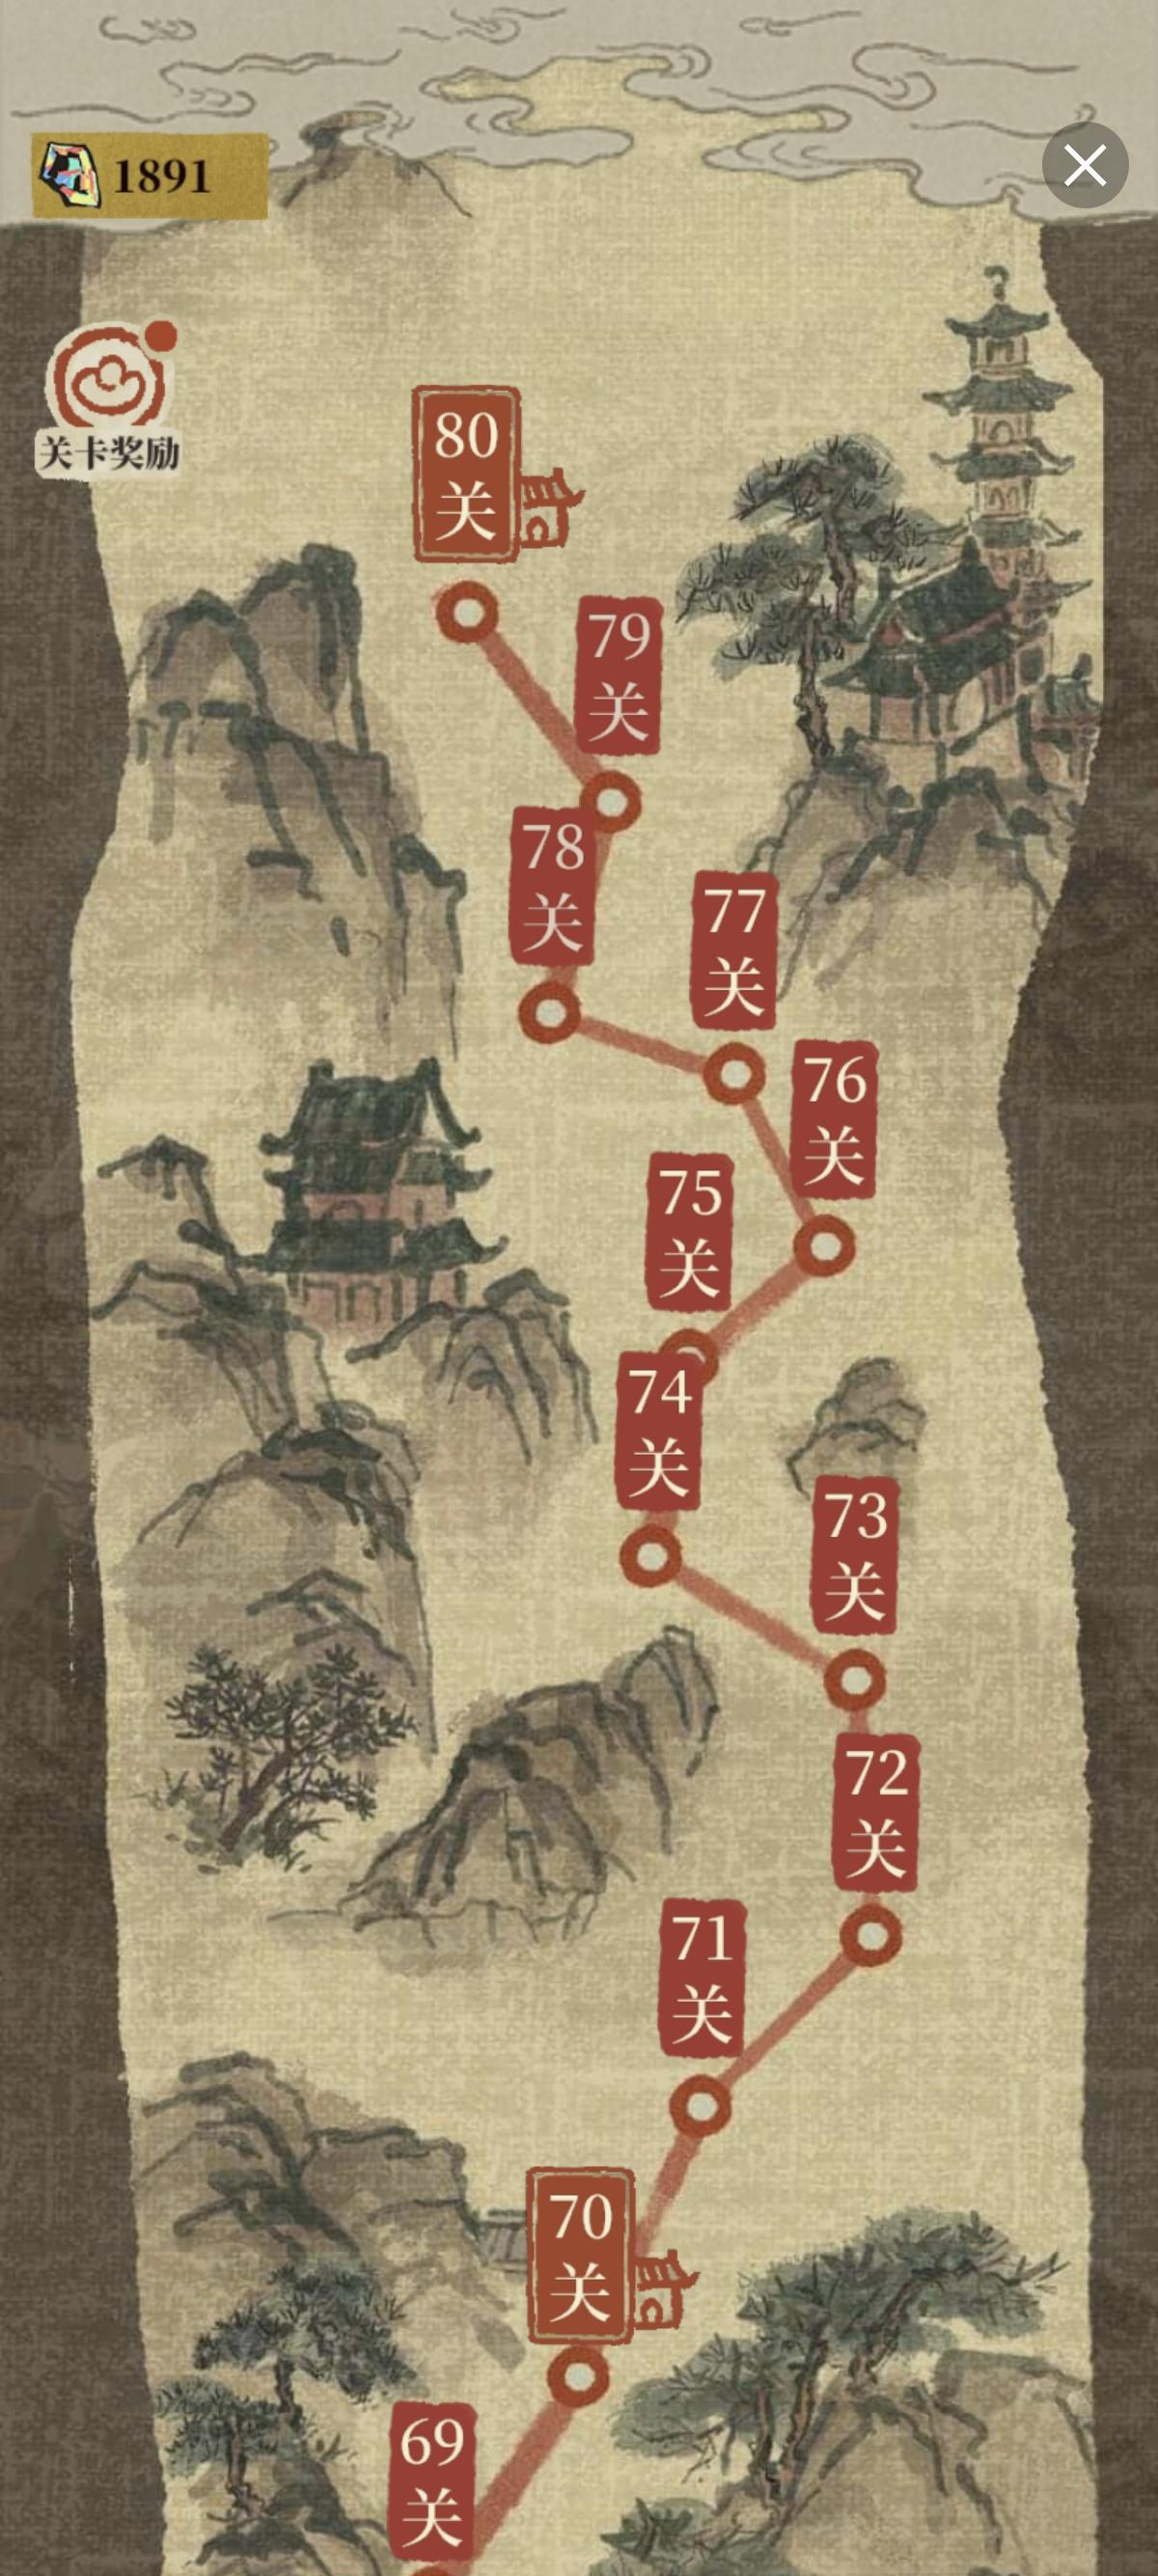 1891
关卡奖励
80
关
79
关
78
关
77
关
76
关
75
关
74
关
73
关
72
关
71
关
70
关
69
关